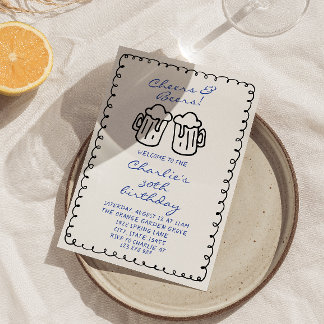 Cheers &
Beers!
WELCOME TO THE
Charlie's
30th
birthday
SATURDAY, AUGUST 12 AT 11AM
THE ORANGE GARDEN GROVE
1915 SPRING LANE
CITY, STATE 15455
RSVP TO CHARLIE AT
123 875 989